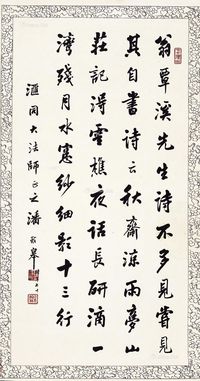 翁覃溪先生诗不多見嘗見
其自書诗云秋齋涼雨夢山
莊記得雪樵夜話長研滴一
灣殘月水窓紗細影十三行
滙同大法師正之潘齡皋